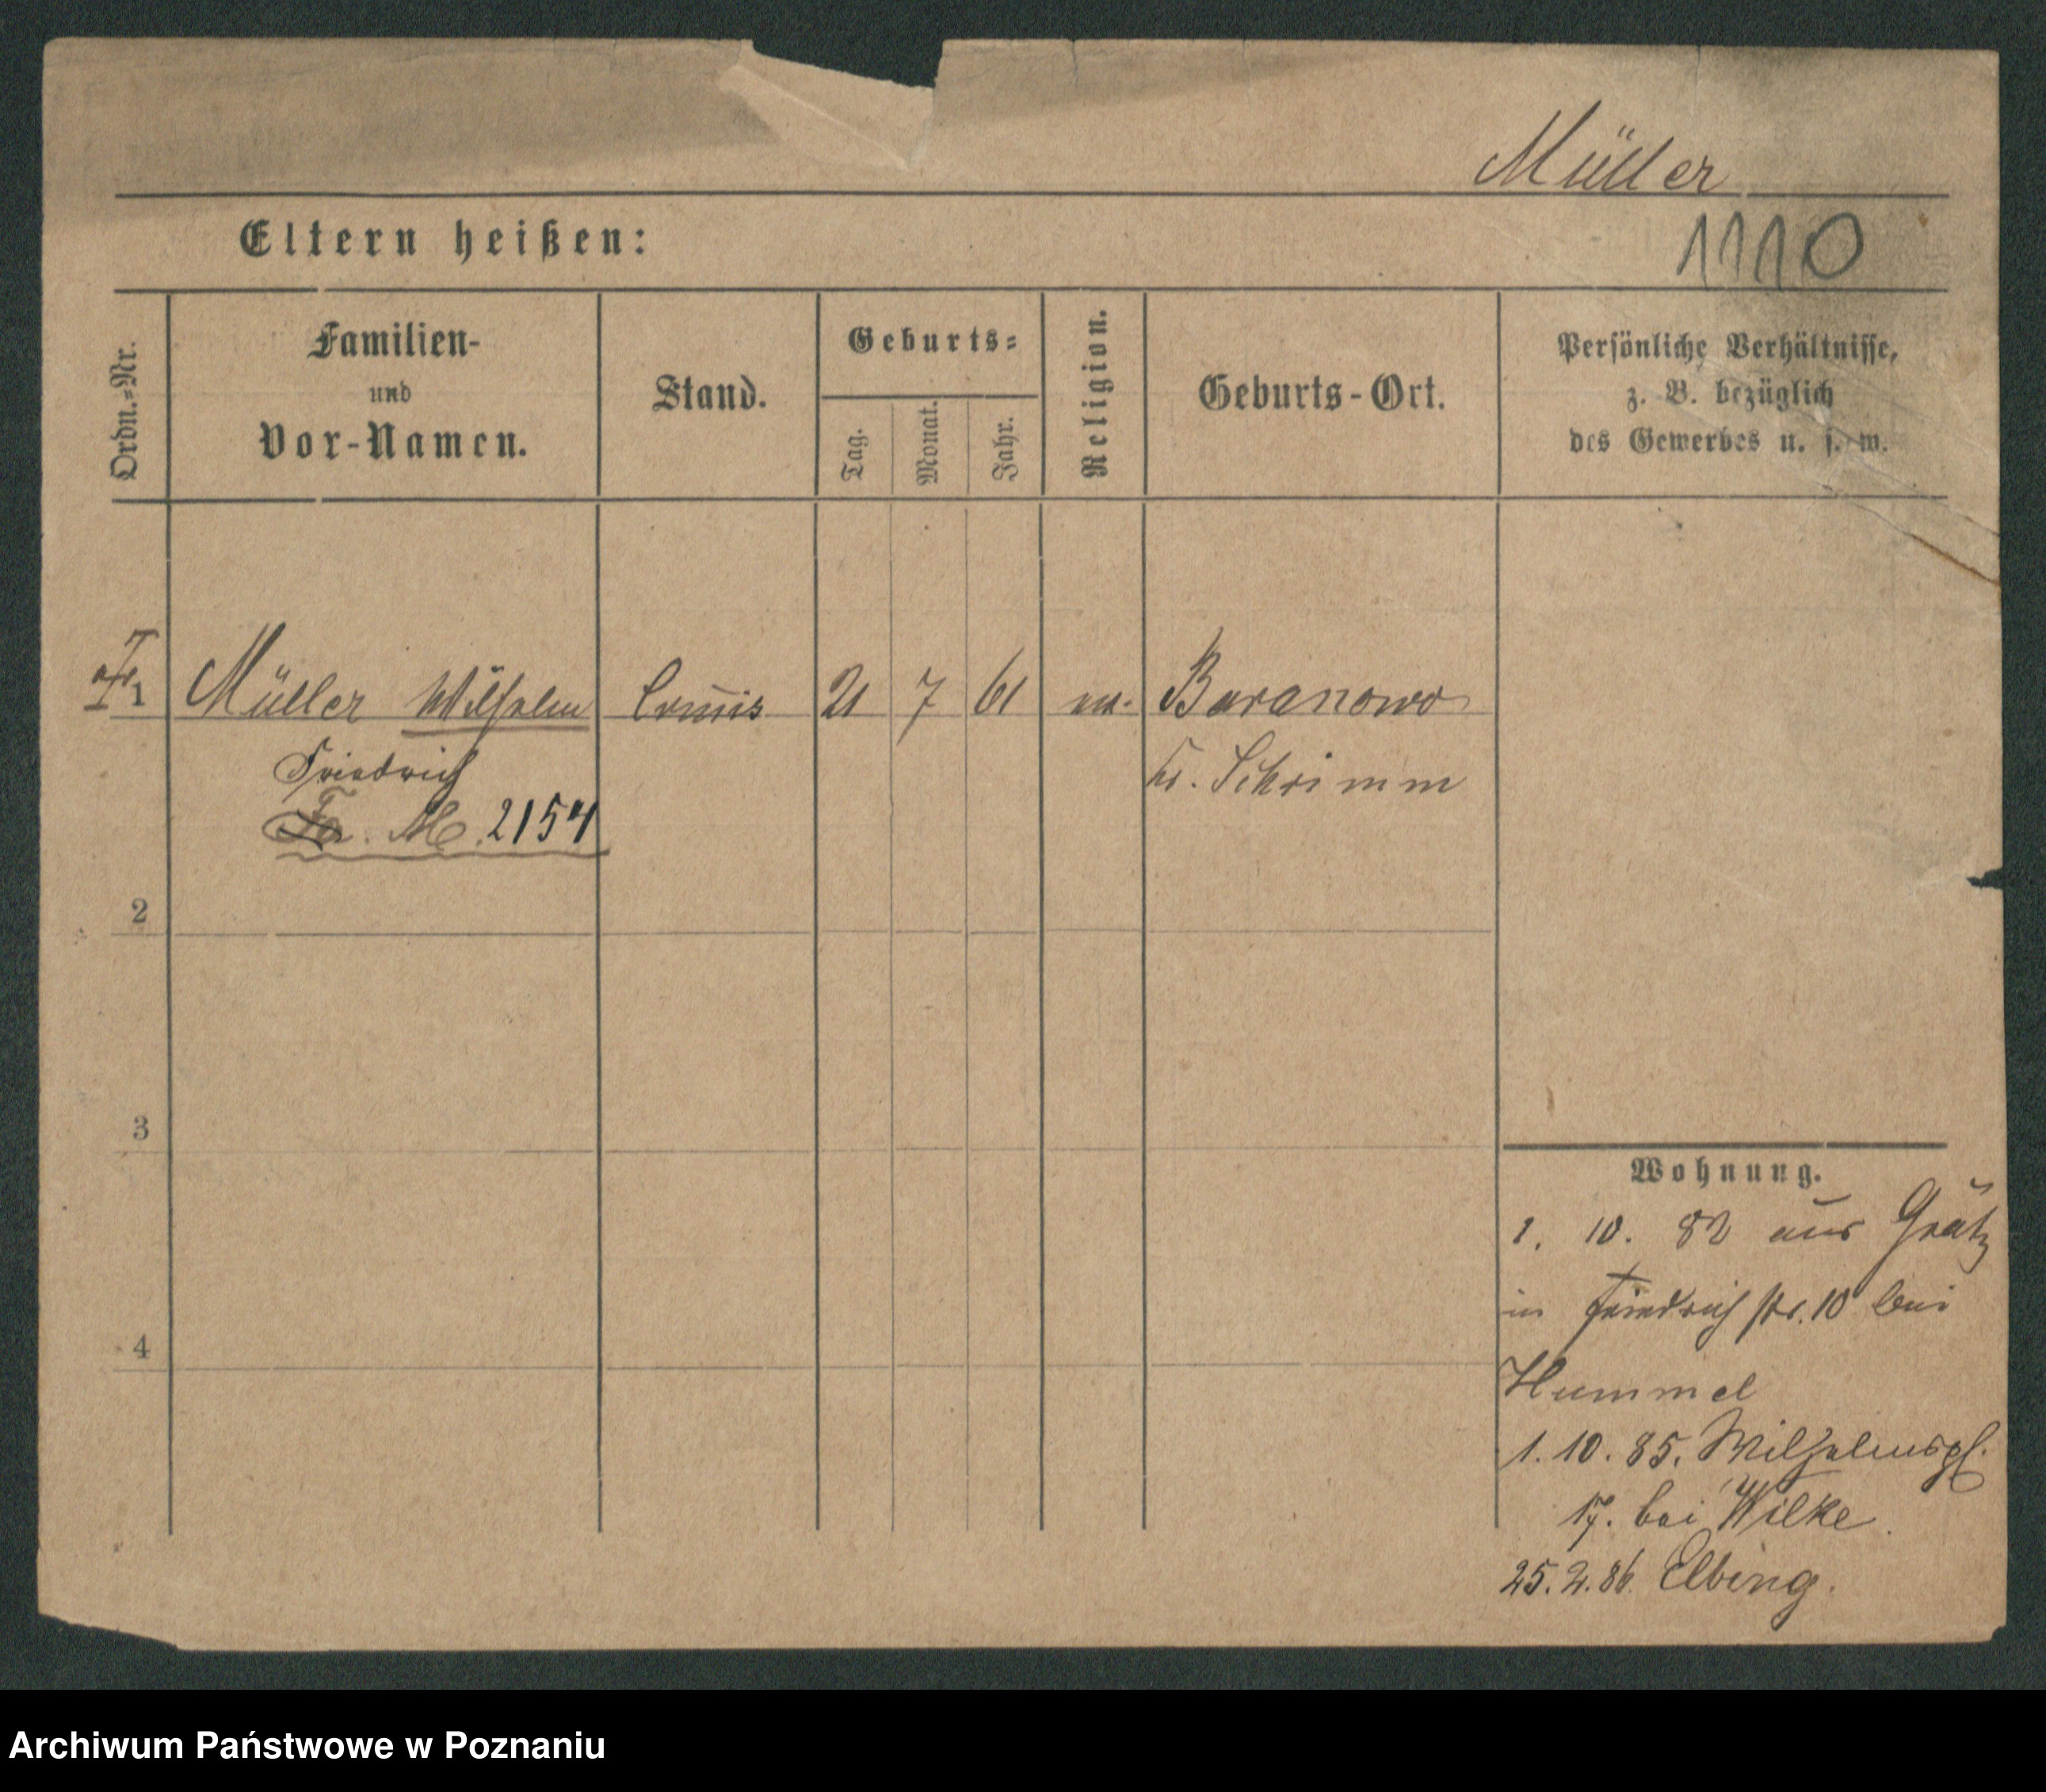 Müller
Eltern heißen:
1110
Ordn.=Nr.
Familien-
und
Vor-Namen.
Stand.
Geburts=
Tag.
Monat.
Jahr.
Religion.
Geburts-Ort.
Persönliche Verhältnisse,
z. B. bezüglich
des Gewerbes u. s. w.
1 Müller Wilhelm Commis 21 7 61 ev. Baranowo
Friedrich Kr. Schrimm
Fa. M. 2154
2
3
4
Wohnung.
1. 10. 82 aus Grätz
in Friedrichstr. 10 bei
Hummel
1. 10. 85. Wilhelmspl.
17. bei Wilke.
25. 2. 86. Elbing.
Archiwum Państwowe w Poznaniu